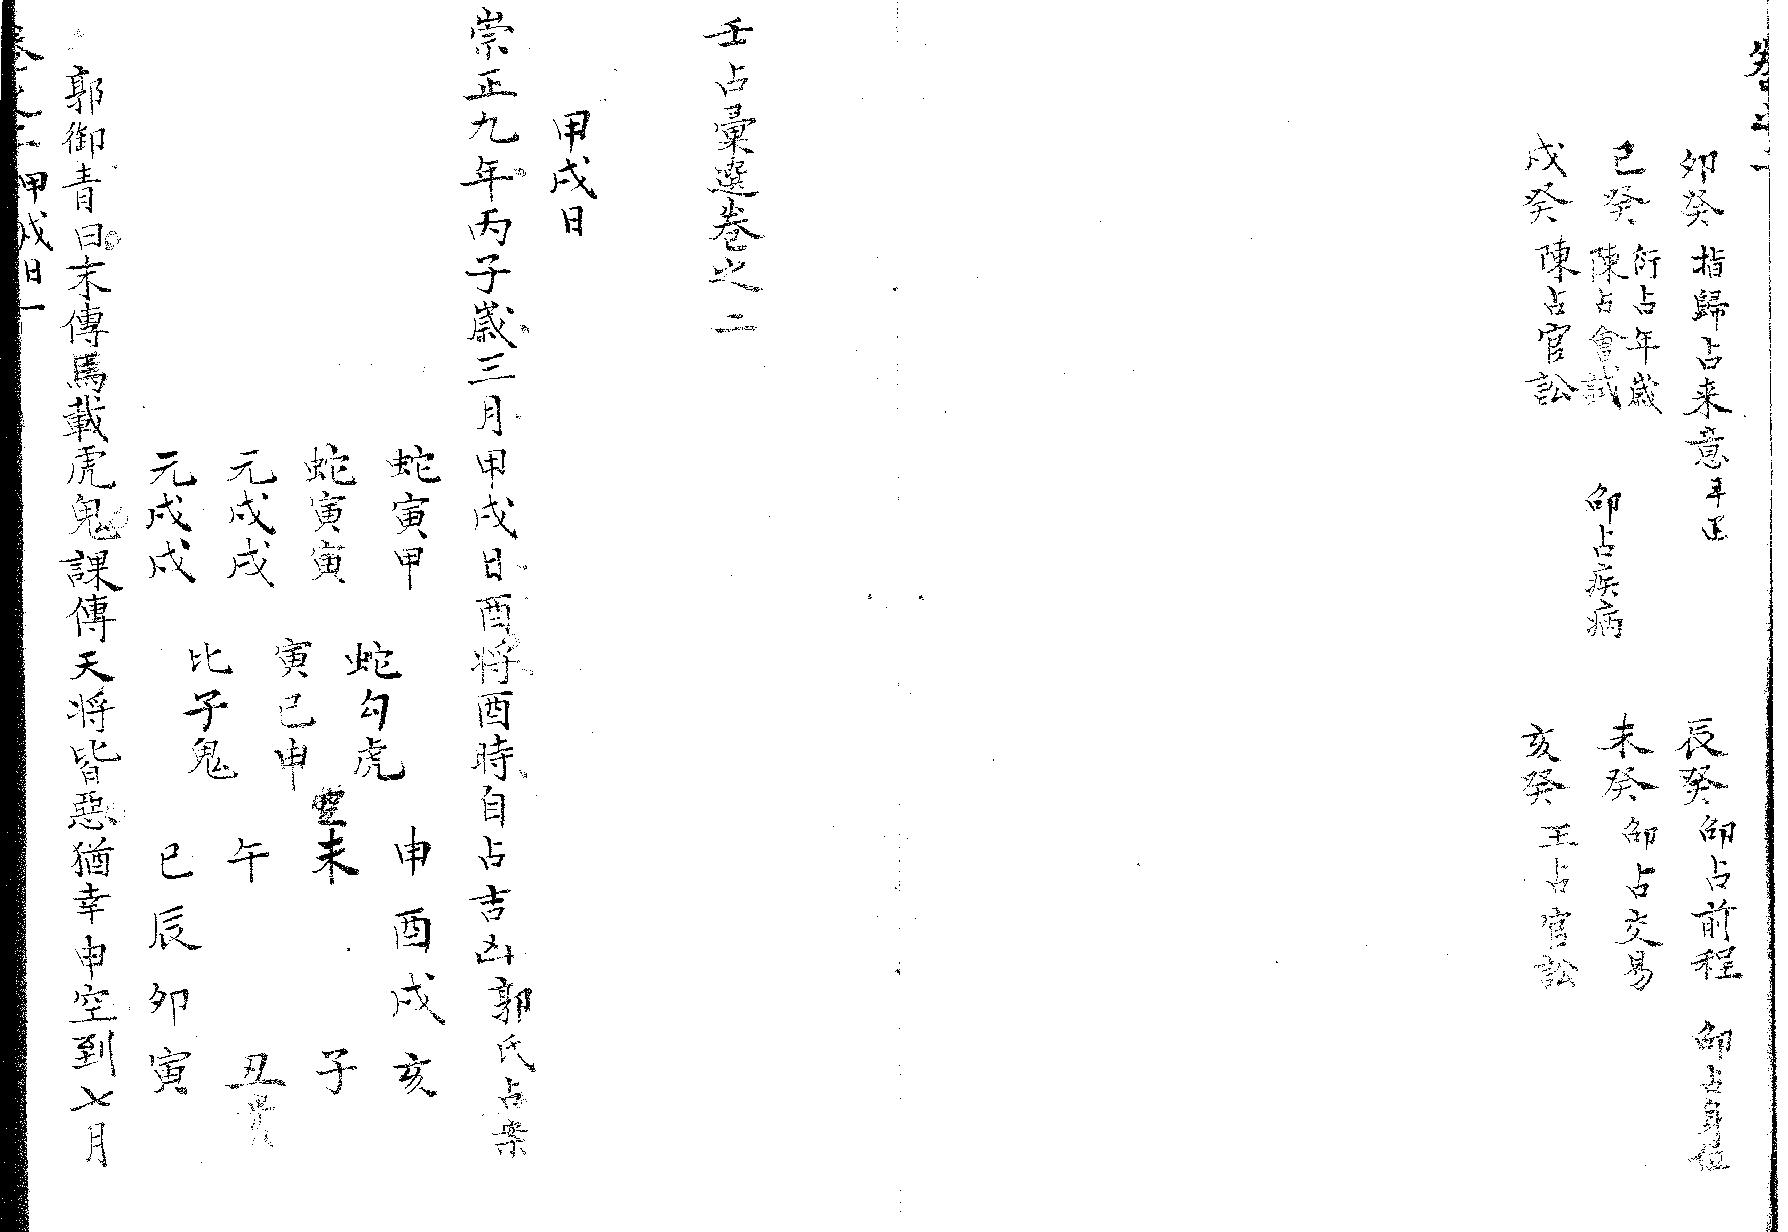 卯癸 指歸占来意
辰癸 邵占前程 邵占身位
巳癸 衍占年歲 陳占會試 邵占疾病
未癸 邵占交易
戌癸 陳占官訟
亥癸 王占官訟
壬占彙選卷之二
甲戌日
崇正九年丙子歲三月甲戌日酉将酉時自占吉凶 郭氏占案
蛇寅甲
蛇寅寅
元戌戌
元戌戌
蛇勾虎
寅巳申
比子鬼
申酉戌亥
空未 子
午 丑貴
巳辰卯寅
郭御青曰末傳馬載虎鬼課傳天将皆惡猶幸申空到七月
卷之二 甲戌日一